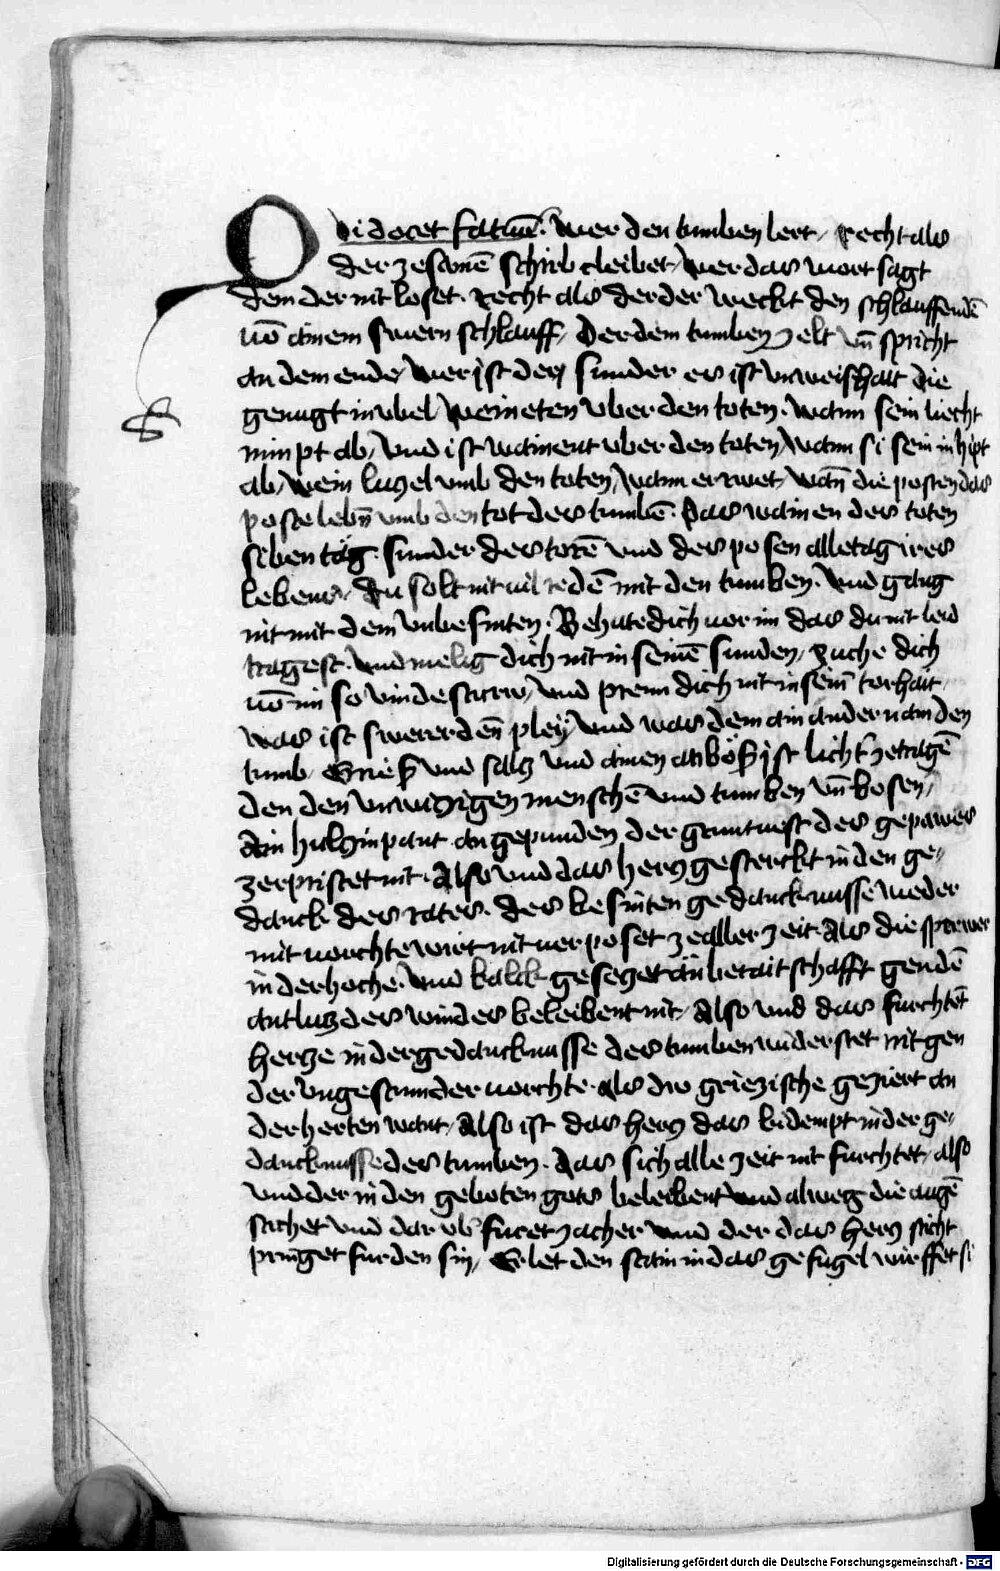 Qui docet fatuū · Wer den tumben lert / Recht als
der zesamē schirb cleibet / wer das wort sagt
dem der nit loset · Recht als der der weckt den schlauffendē
uō ainem swern schlauff / Der dem tumben zelt vn̄ spricht
an dem ende / wer ist der / sunder er ist vnweishait die
genugt in vbel / weineten vber den toten · wann sein liecht
nimpt ab / vnd ist wainent vber den toten / wann si sein in hipt
ab / wein luzel vmb den toten / wann er rwet / wan̄ die posten das
poste lebn̄ vmb den tot des tumbē · Das wainen des toten
siben täg · sunder des torē vnd des posen alle tag ires
lebens / Du solt nit vil redē mit den tumben · vnd gang
nit mit dem vnbesinten · Behute dich vor im das du nit leid
tragest · vnd melig dich nit in seinē sunden / Suche dich
uō im so vindestu rw / vnd prenn dich nit in seinr̄ torhait
was ist swerer den̄ pley / vnd was dem ain ander nam den
tumb / Grieß vnd salz vnd ainen anböß ist licht zetragē
den den vnwizzigen menschē vnd tumben vn̄ bosen /
Ain hulzin pant angepunden der gruntuest des gepawes
zerpristet nit · Also vnd das herz gesterckt in den ge/
danck des rates · des besinten gedancknusse weder
mit vorchte wirt nit verposet ze aller zeit · Als die sparwer
in der hoche · vnd kalck gesezet an beraitschafft gen dē
antluz des windes beleibent nit / Also vnd das furchtēt
hertze in der gedancknusse des tumben widerstet nit gen
der vngestum der vorchte · als die griezische geziert an
der herten want / Also ist das herz das bidempt in der ge/
dancknusse des tumben · Das sich alle zeit nit furchtet / also
vnd der in den geboten gots beleibent vnd alweg die augē
stichet vnd dar vß furet zacher vnd der das herz sticht
pringet fur den sin / Er let den stain in das gefugel wirffet si